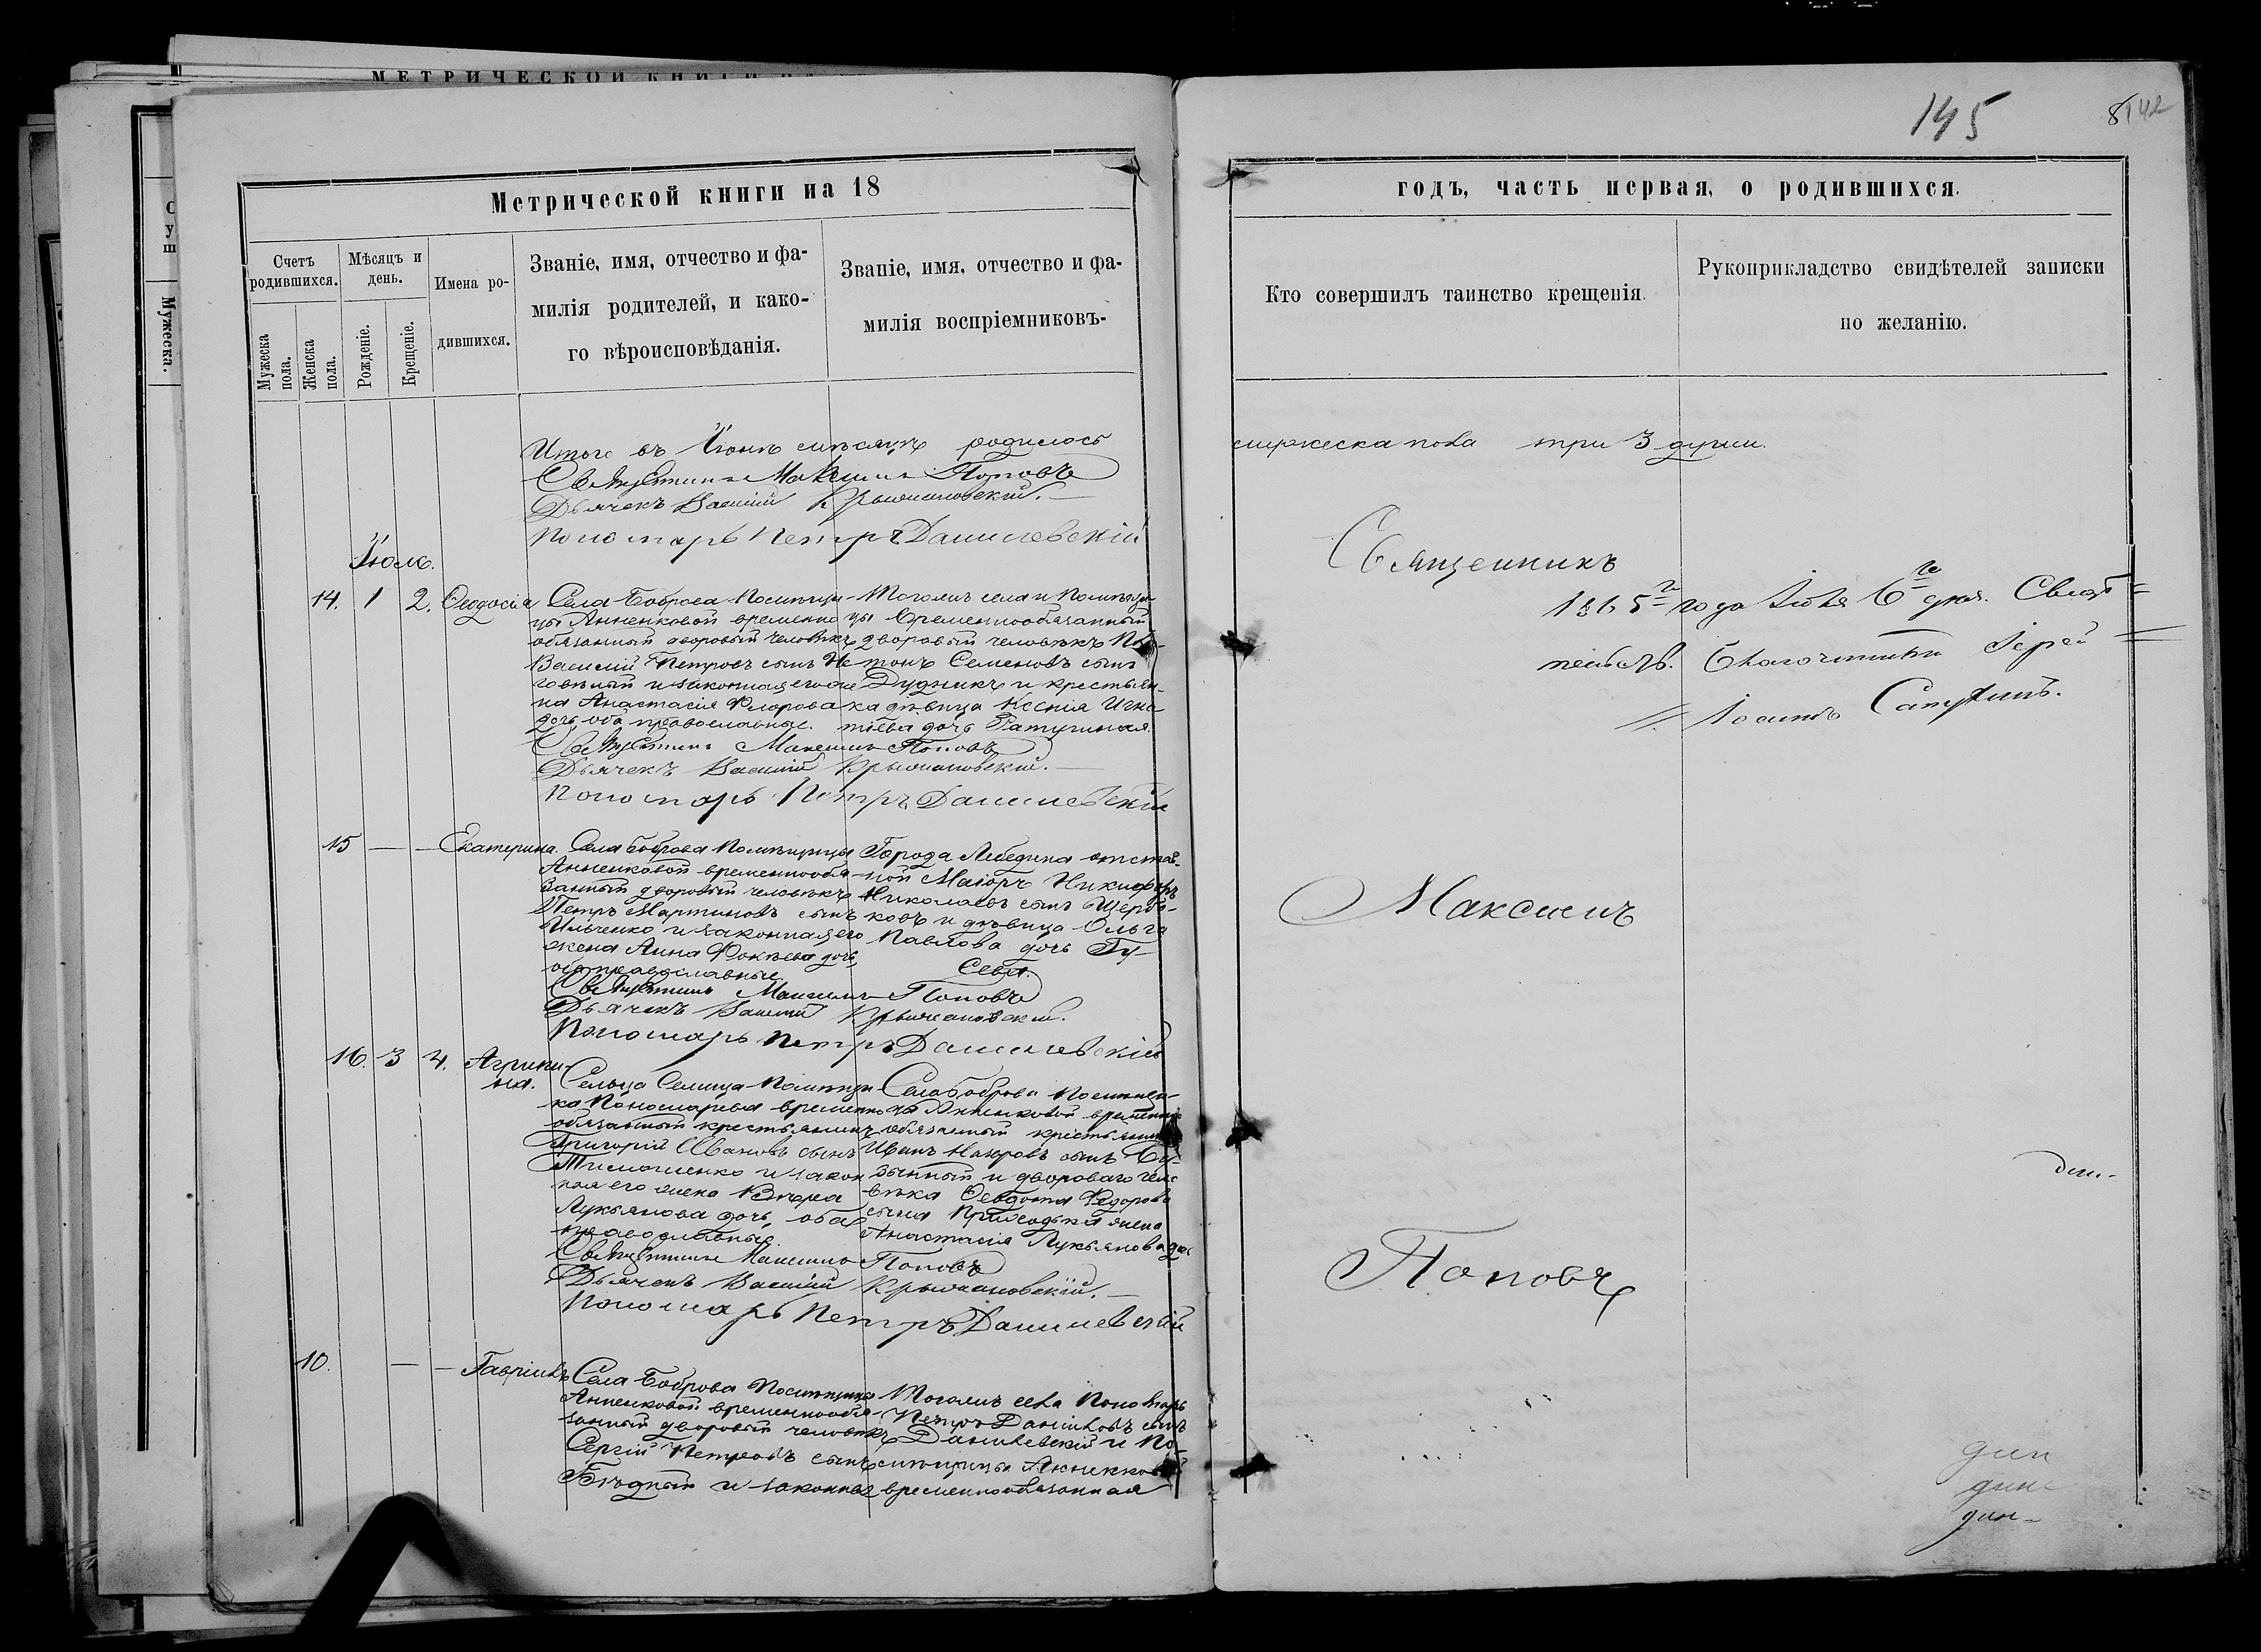 МЕТРИЧЕСКОЙ КНИГИ
145
8
142
Метрической книги на 18
Счетъ родившихся.
Мужеска пола.
Женска пола.
Мѣсяцъ и день.
Рожденіе.
Крещеніе.
Имена родившихся.
Званіе, имя, отчество и фа-
милія родителей, и како-
го вѣроисповѣданія.
Званіе, имя, отчество и фа-
милія воспріемниковъ-
годъ, часть первая, о родившихся.
Кто совершилъ таинство крещенія.
Рукоприкладство свидѣтелей записки
по желанію.
Итого въ Іюнѣ мѣсяцѣ родилось
мужеска пола три 3 души.
Священникъ Максимъ Поповъ
Дьячекъ Василій Крыжановскій.
Пономарь Петръ Данилевскій
Іюль.
14. 1 2. Ѳеодосія
Села Боброва Помѣщи-
цы Анненковой временно
обязанный дворовый человѣкъ
Василій Петровъ сынъ
и законная его
на Анастасія Флорова
дочь, оба православные.
Тогожъ села и Помѣщи-
цы Временнообязанный
дворовый человѣкъ
Семеновъ сынъ
Дудникъ и крестьян-
ка дѣвица Ксенія Игна
тіева дочь
Священникъ Максимъ Поповъ
Дьячекъ Василій Крыжановскій.
Пономарь Петръ Данилевскій
15 — — Екатерина.
Села Боброва Помѣщицы
Анненковой временнообя-
занный дворовый человѣкъ
Петръ Мартиновъ сынъ
Ильченко и законная его
жена Анна Фокѣева дочь,
оба православные
Города Лебедина отстав-
ной Маіоръ Никифоръ
Николаевъ сынъ Щерба-
ковъ и дѣвица Ольга
Павлова дочь Гу-
сева.
Священникъ Максимъ Поповъ
Дьячекъ Василій Крыжановскій.
Пономарь Петръ Данилевскій
16. 3 4. Агрипи-
на.
Сельца Помѣщи-
ка Пономарева временно
обязанный крестьянинъ
Григорій Ивановъ сынъ
Тимошенко и закон
ная его жена
Лукьянова дочь, оба
православные.
Села Боброва Помѣщи-
цы Анненковой временно
обязанный крестьянинъ
Иванъ сынъ
и двороваго чело
вѣка Ѳеодота Федорова
сына Приходька жена
Анастасія Лукьянова дочь
Священникъ Максимъ Поповъ
Дьячекъ Василій Крыжановскій.
Пономарь Петръ Данилевскій
10. — — Гавріилъ
Села Боброва Помѣщицы
Анненковой временнообя-
занный дворовый человѣкъ
Сергій Петровъ сынъ
Бѣдный и законная
Тогожъ села Пономарь
Петръ Даниловъ сынъ
Данилевскій и По-
мѣщицы Анненковой
временнообязанная
Священникъ
1865 го года Іюля 6 го дня.
Благочинный Іерей
Іосифъ
Максимъ
Поповъ